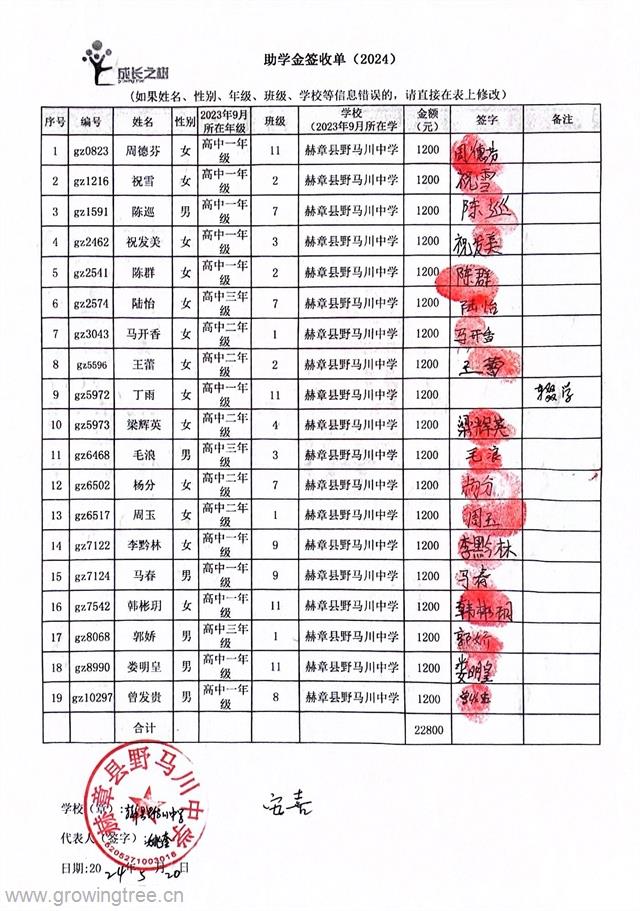 成长之树
growing tree
助学金签收单（2024）
(如果姓名、性别、年级、班级、学校等信息错误的，请直接在表上修改)
序号 编号 姓名 性别 2023年9月所在年级 班级 学校（2023年9月所在学 金额（元） 签字 备注
1 gz0823 周德芬 女 高中一年级 11 赫章县野马川中学 1200 周德芬
2 gz1216 祝雪 女 高中一年级 2 赫章县野马川中学 1200 祝雪
3 gz1591 陈巡 男 高中一年级 7 赫章县野马川中学 1200 陈巡
4 gz2462 祝发美 女 高中一年级 3 赫章县野马川中学 1200 祝发美
5 gz2541 陈群 女 高中一年级 2 赫章县野马川中学 1200 陈群
6 gz2574 陆怡 女 高中三年级 7 赫章县野马川中学 1200 陆怡
7 gz3043 马开香 女 高中二年级 1 赫章县野马川中学 1200 马开香
8 gz5596 王蕾 女 高中二年级 2 赫章县野马川中学 1200 王蕾
9 gz5972 丁雨 女 高中一年级 11 赫章县野马川中学 1200 辍学
10 gz5973 梁辉英 女 高中二年级 4 赫章县野马川中学 1200 梁辉英
11 gz6468 毛浪 男 高中三年级 3 赫章县野马川中学 1200 毛浪
12 gz6502 杨分 女 高中二年级 7 赫章县野马川中学 1200 杨分
13 gz6517 周玉 女 高中二年级 1 赫章县野马川中学 1200 周玉
14 gz7122 李黔林 女 高中一年级 9 赫章县野马川中学 1200 李黔林
15 gz7124 马春 男 高中一年级 9 赫章县野马川中学 1200 马春
16 gz7542 韩彬玥 女 高中一年级 11 赫章县野马川中学 1200 韩彬玥
17 gz8068 郭娇 男 高中三年级 1 赫章县野马川中学 1200 郭娇
18 gz8990 娄明皇 男 高中一年级 11 赫章县野马川中学 1200 娄明皇
19 gz10297 曾发贵 男 高中一年级 8 赫章县野马川中学 1200
合计 22800
赫章县野马川中学
学校（章）:
代表人（签字）:
5205271003018
日期:2024年5月20日
www.growingtree.cn